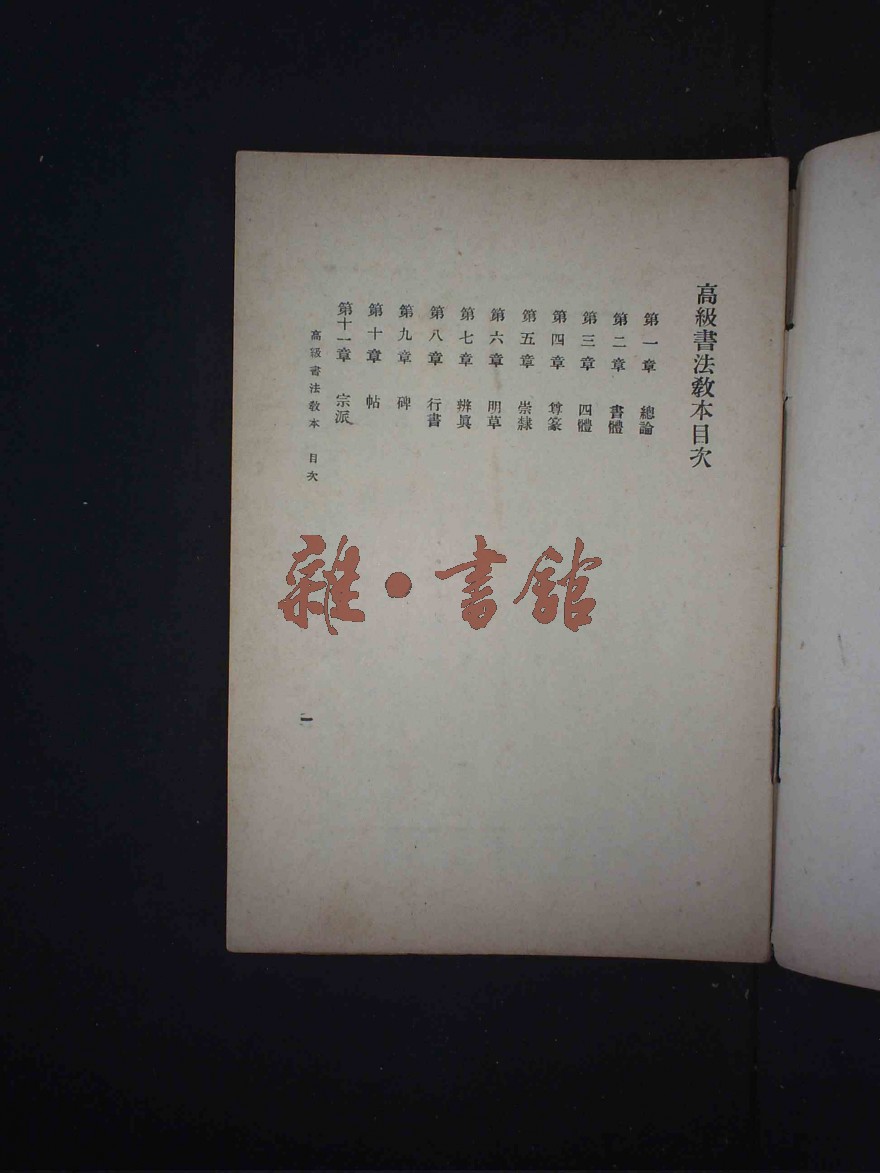 高級書法教本目次
第一章　總論
第二章　書體
第三章　四體
第四章　尊篆
第五章　崇隸
第六章　明草
第七章　辨眞
第八章　行書
第九章　碑
第十章　帖
第十一章　宗派
高級書法教本　目次
一
雜・書館